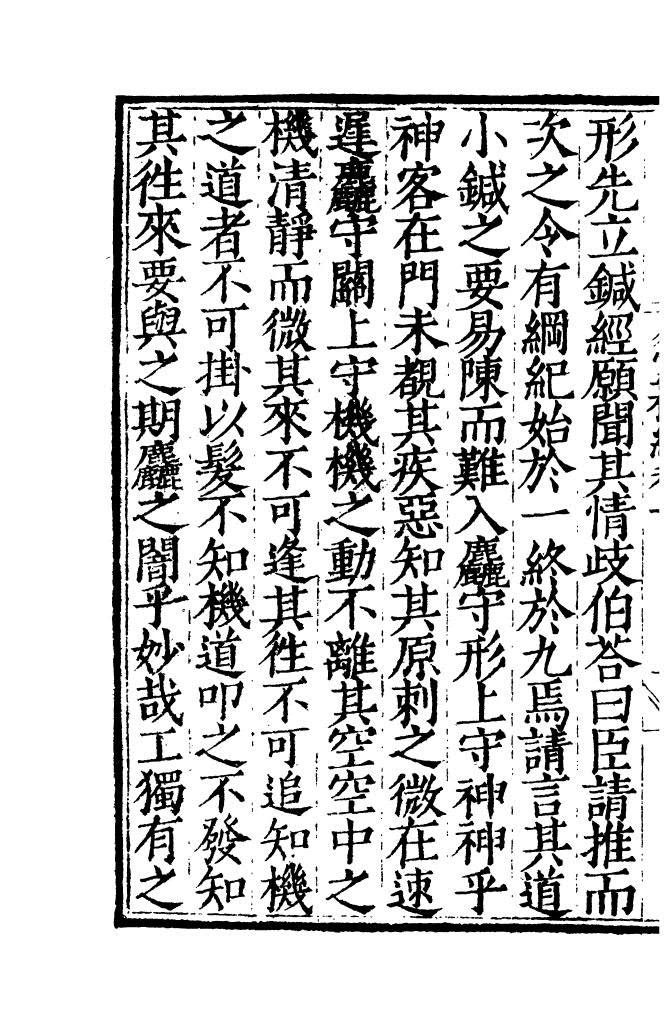 形先立鍼經願聞其情歧伯荅曰臣請推而
次之令有綱紀始於一終於九焉請言其道
小鍼之要易陳而難入麤守形上守神神乎
神客在門未覩其疾惡知其原刺之微在速
遲麤守關上守機機之動不離其空空中之
機清靜而微其來不可逢其徃不可追知機
之道者不可掛以髮不知機道叩之不發知
其徃來要與之期麤之闇乎妙哉工獨有之